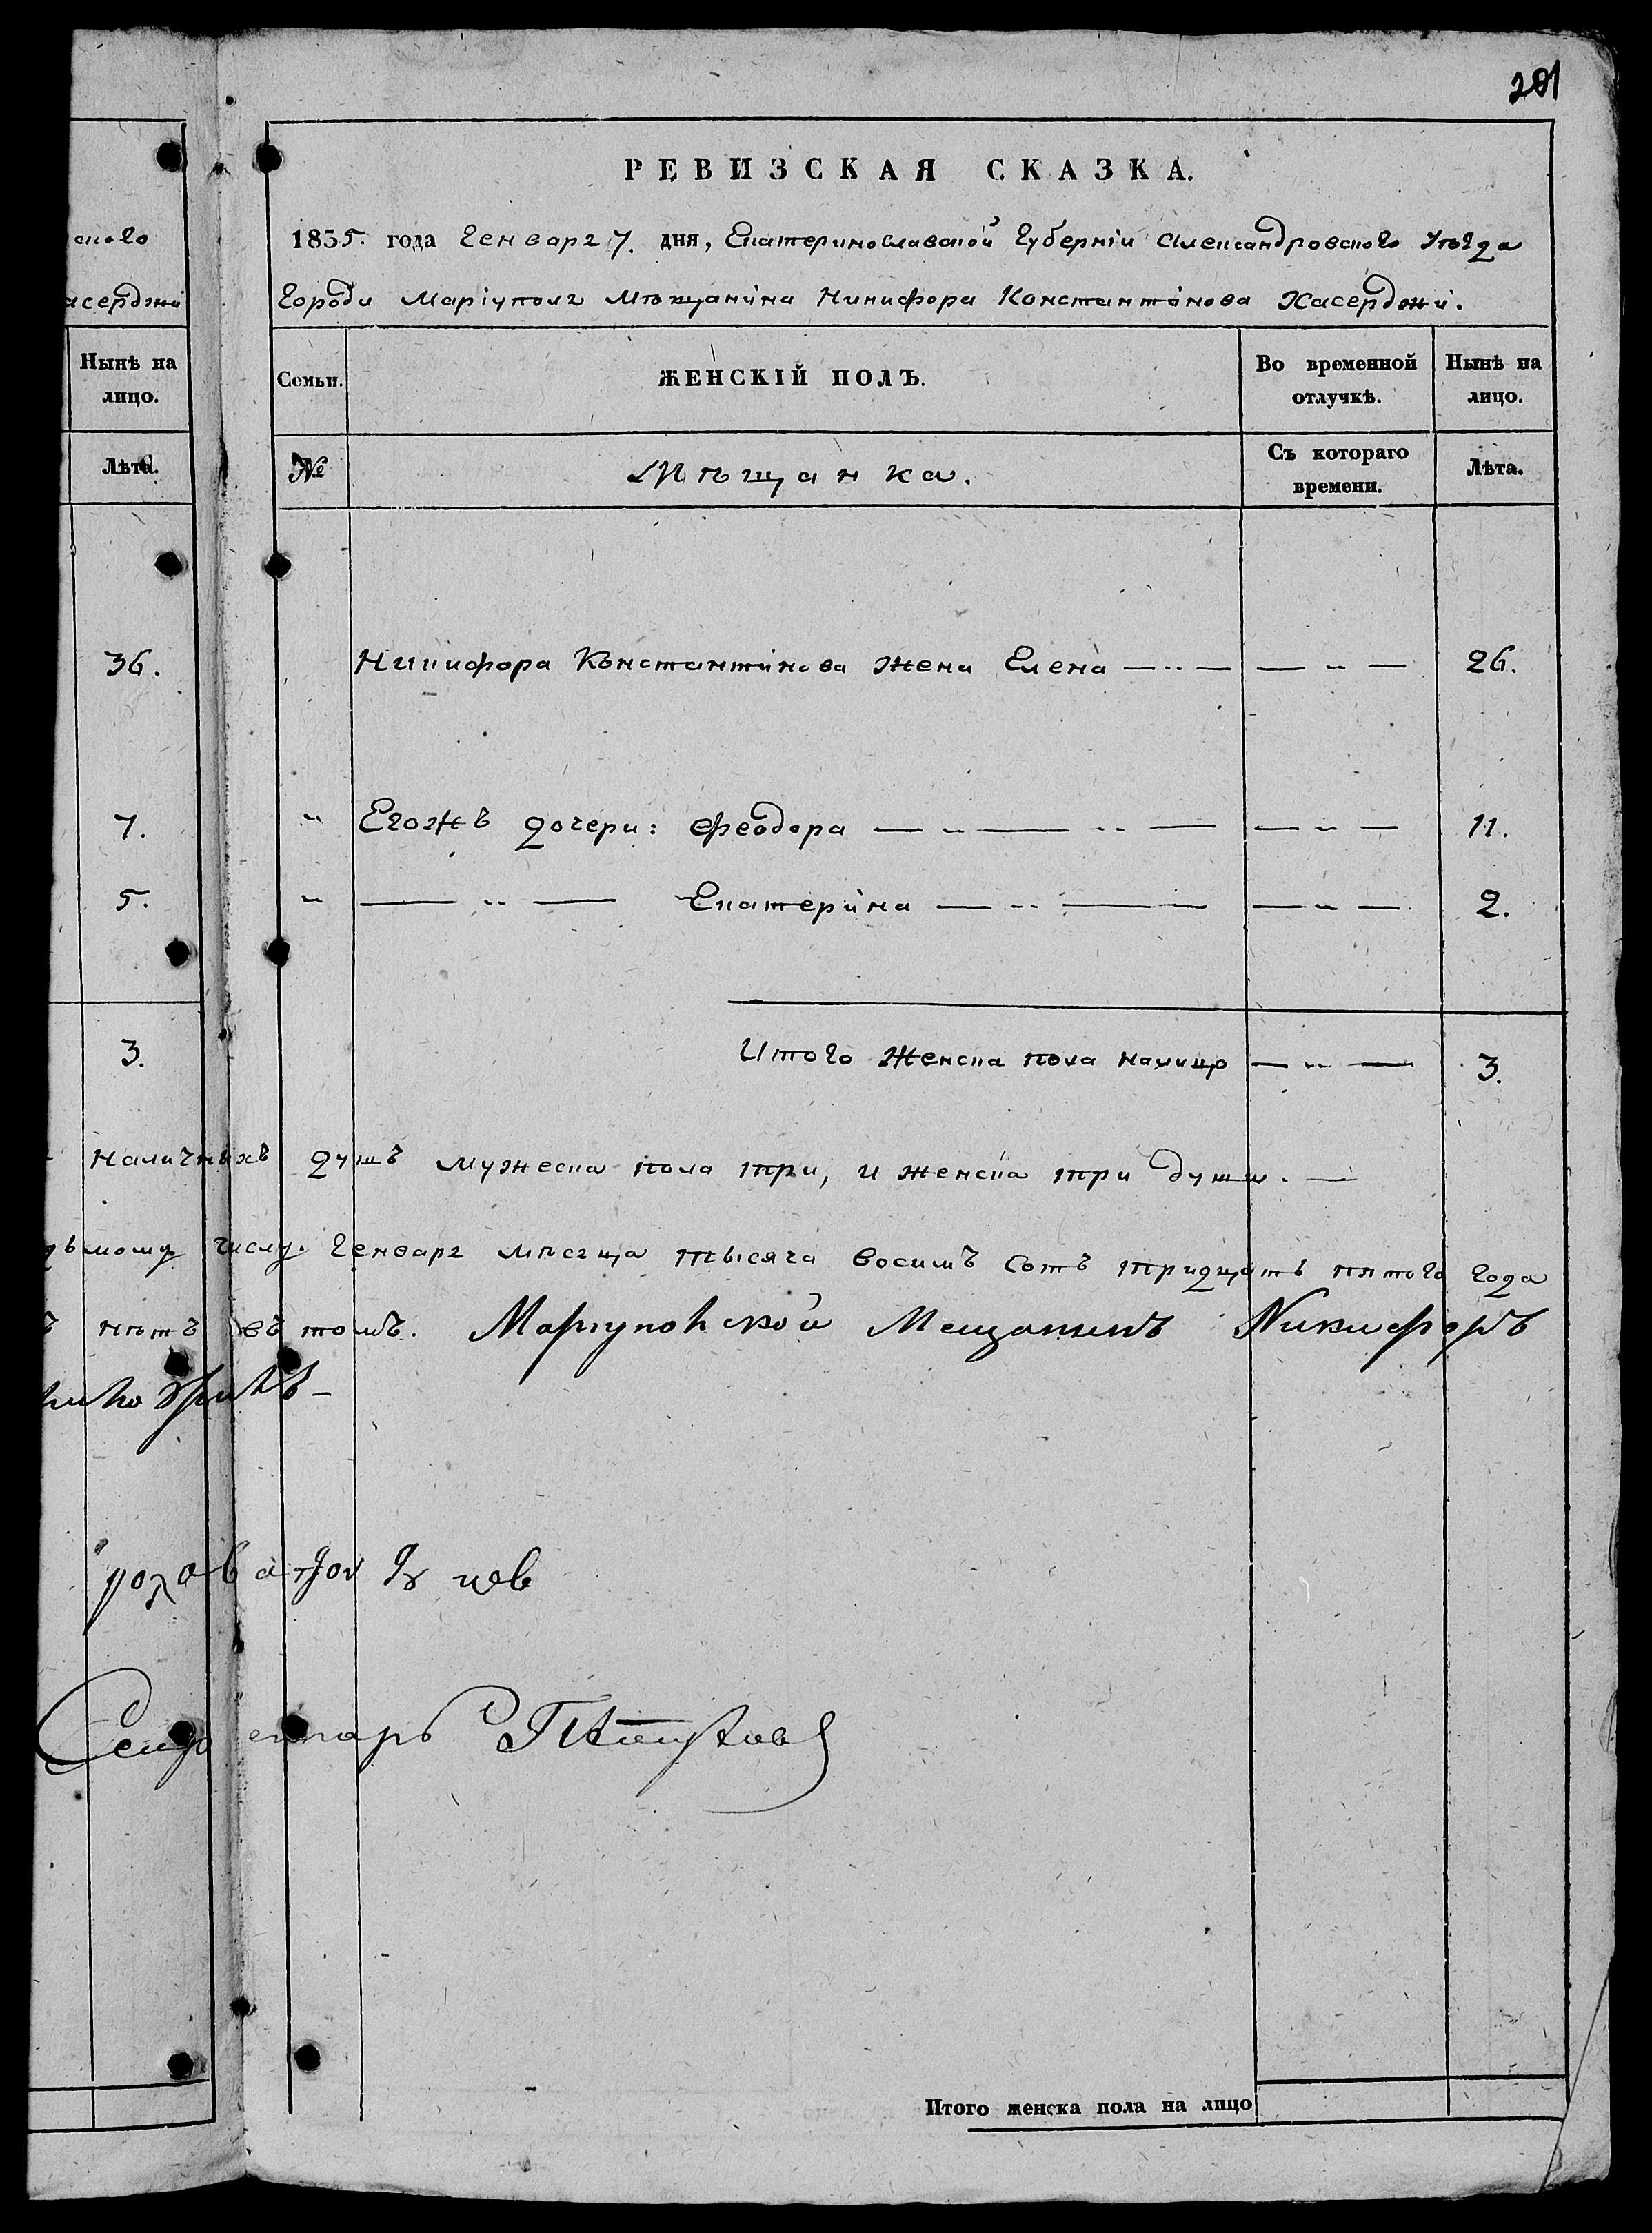 281
РЕВИЗСКАЯ СКАЗКА.
1835. года Генваря 7. дня, Екатеринославской Губерніи Александровского Уѣзда
города Маріуполя Мѣщанина Никифора Константинова Хасерджи.
ского
асерджи
Нынѣ на лицо.
Семьи.
ЖЕНСКІЙ ПОЛЪ.
Во временной отлучкѣ.
Нынѣ на лицо.
Лѣта.
№
Мѣщанка.
Съ котораго времени.
Лѣта.
36. Никифора Константинова жена Елена — „ — — „ — 26.
7. „ Егожъ дочери: Феодора — „ — „ — — „ — 11.
5. „ — „ — Екатерина — „ — — „ — 2.
3. Итого женска пола налицо — „ — 3.
наличныхъ душъ мужеска пола три, и женска три души. —
дьмому числу. Генваря мѣсяца тысяча восимъ сотъ тридцать пятого года
ъ нѣтъ въ томъ. Мариупольской Мещанинъ Никифоръ
Секретарь
Итого женска пола на лицо